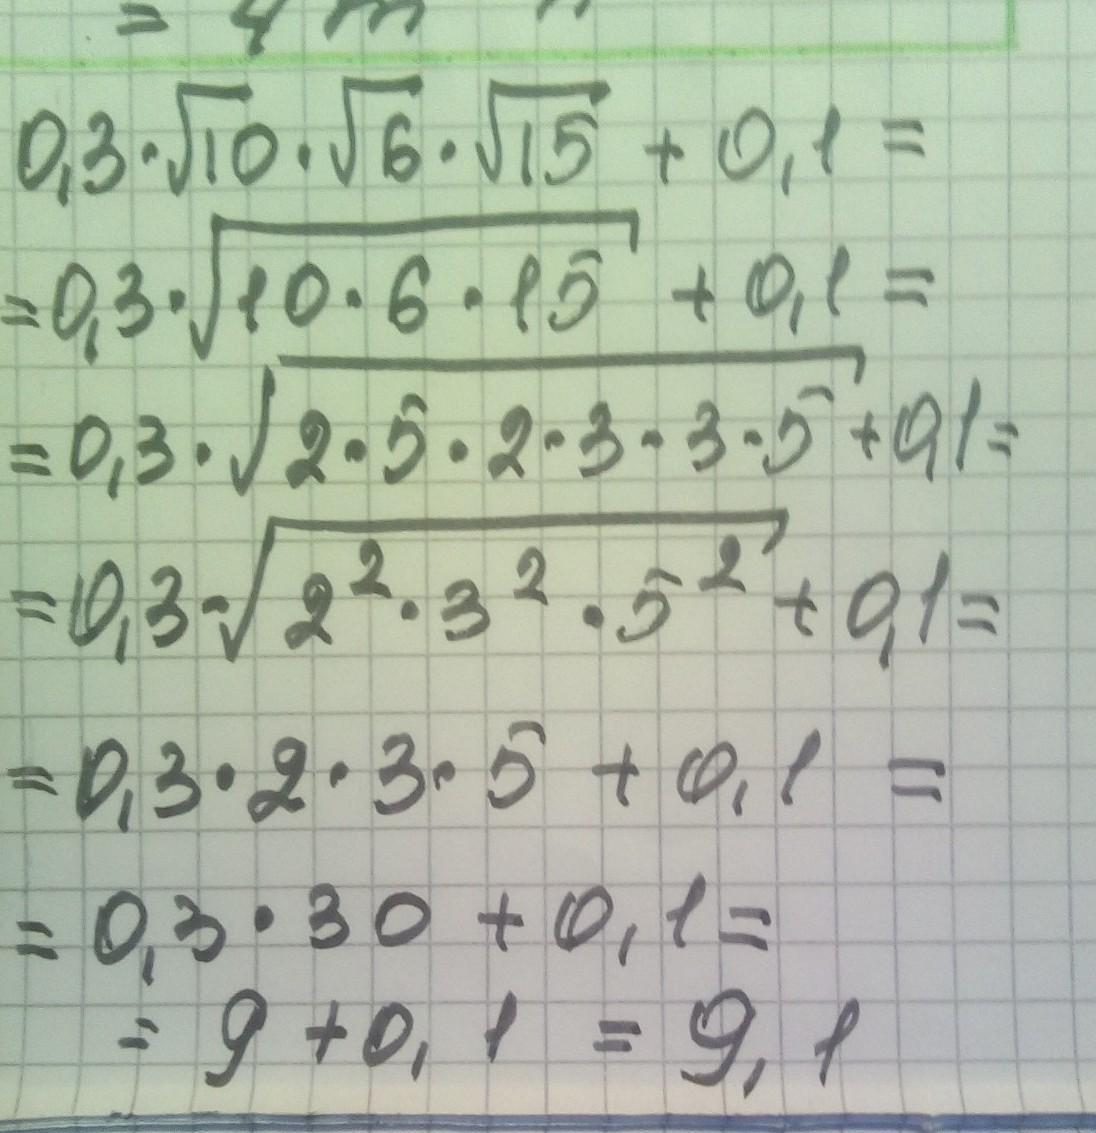 0,3·√10·√6·√15 + 0,1 =
= 0,3·√10·6·15 + 0,1 =
= 0,3·√2·5·2·3·3·5 + 0,1 =
= 0,3·√2²·3²·5² + 0,1 =
= 0,3·2·3·5 + 0,1 =
= 0,3·30 + 0,1 =
= 9 + 0,1 = 9,1